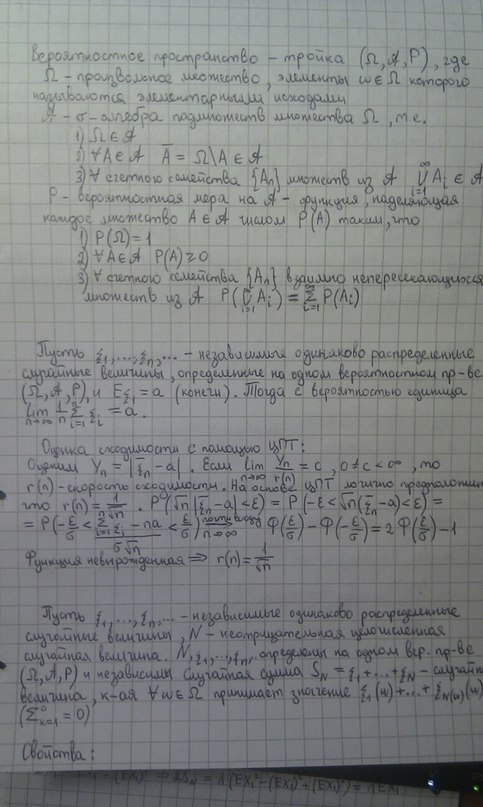 Вероятностное пространство - тройка (Ω, 𝒜, P), где
Ω - произвольное множество, элементы ω∈Ω которого
называются элементарными исходами
𝒜 - σ-алгебра подмножеств множества Ω, т.е.
1) Ω∈𝒜
2) ∀A∈𝒜 Ā = Ω\A ∈ 𝒜
3) ∀ счетного семейства {Aₙ} множеств из 𝒜 ∪_{i=1}^∞ Aᵢ ∈ 𝒜
P - вероятностная мера на 𝒜 - функция, наделяющая
каждое множество A∈𝒜 числом P(A) таким, что
1) P(Ω)=1
2) ∀A∈𝒜 P(A)≥0
3) ∀ счетного семейства {Aₙ} взаимно непересекающихся
множеств из 𝒜 P(∪_{i=1}^∞ Aᵢ) = Σ_{i=1}^∞ P(Aᵢ)
Пусть ξ₁,...,ξₙ,... - независимые одинаково распределенные
случайные величины, определенные на одном вероятностном пр-ве
(Ω, 𝒜, P), и Eξ₁=a (конечн). Тогда с вероятностью единица
lim_{n→∞} 1/n Σ_{i=1}^n ξᵢ = a.
Оценка сходимости с помощью ЦПТ:
Оценим Yₙ = |ξ̄ₙ - a|. Если lim_{n→∞} Yₙ/r(n) = c, 0≠c<∞, то
r(n) - скорость сходимости. На основе ЦПТ логично предположить
что r(n) = 1/√n. P(√n|ξ̄ₙ-a|<ε) = P(-ε<√n(ξ̄ₙ-a)<ε) =
= P(-ε/σ < (Σ_{i=1}^n ξᵢ - na)/(σ√n) < ε/σ) ⟹_{n→∞} Φ(ε/σ) - Φ(-ε/σ) = 2Φ(ε/σ) - 1
Функция невырожденная ⟹ r(n) = 1/√n
Пусть ξ₁,...,ξₙ,... - независимые одинаково распределенные
случайные величины, N - неотрицательная целочисленная
случайная величина. N, ξ₁,..., ξₙ,... определены на одном вер. пр-ве
(Ω, 𝒜, P) и независимы Случайная сумма S_N = ξ₁+...+ξ_N - случайн
величина, к-ая ∀ω∈Ω принимает значение ξ₁(ω)+...+ξ_{N(ω)}(ω)
(Σ_{k=1}^0 = 0)
Свойства: